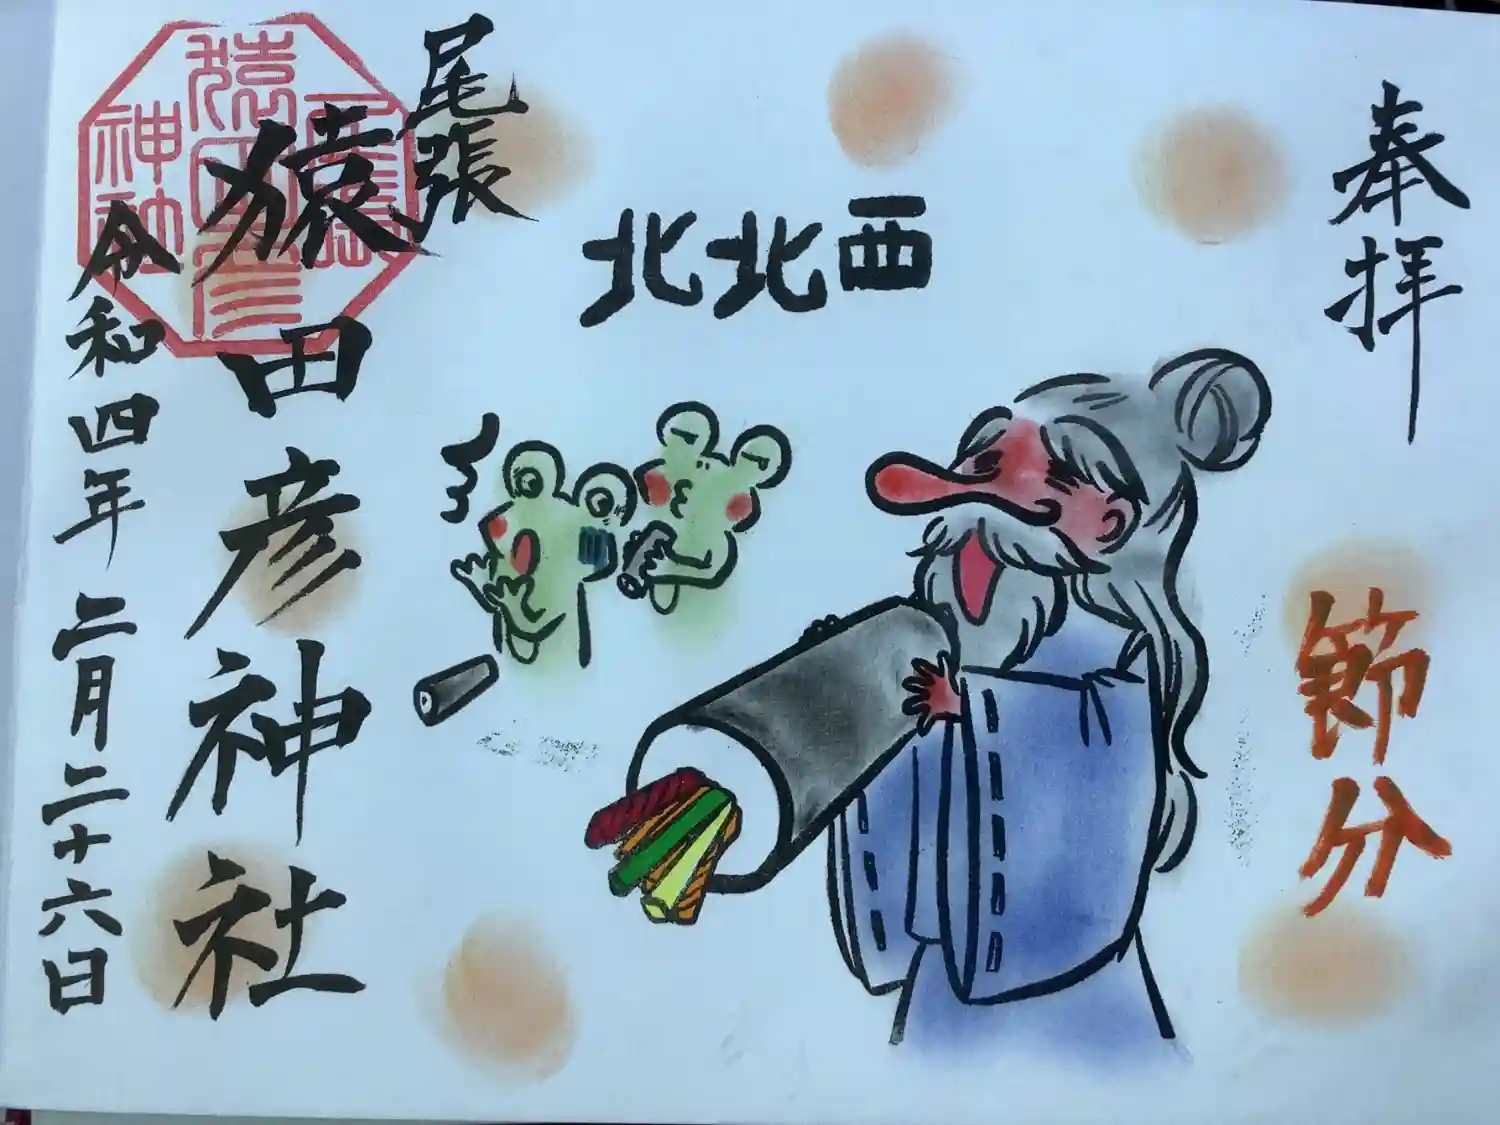 奉拝
節分
北北西
尾張
猿田彦神社
令和四年 二月二十六日
尾張
猿田彦
神社